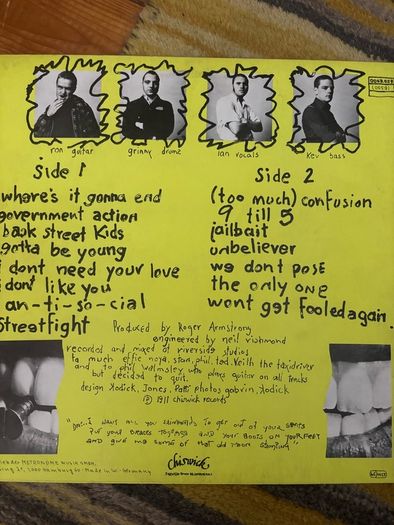 ron guitar
grinny drumz
ian vocals
kev bass
Side 1
where's it gonna end
government action
back street kids
gotta be young
i dont need your love
i dont like you
an-ti-so-cial
streetfight
Side 2
(too much) confusion
9 till 5
jailbait
unbeliever
we dont pose
the only one
wont get fooled again
Produced by Roger Armstrong
engineered by neil richmond
recorded and mixed at riverside studios
to much effic noya. stan, phil, tod, Keith the taxidriver
and to phil walmsley who plays guitar on all tracks
but decided to quit.
design Kodick, Jones, Patti photos gobvin, Kodick
℗ 1981 chiswick records
I want all you skinheads to get out of your seats
Put your braces together and your boots on your feet
and give me some of that old moon stomping"
Chiswick
METRONOME MUSIK GMBH,
2000 Hamburg 60 · Made in W.-Germany